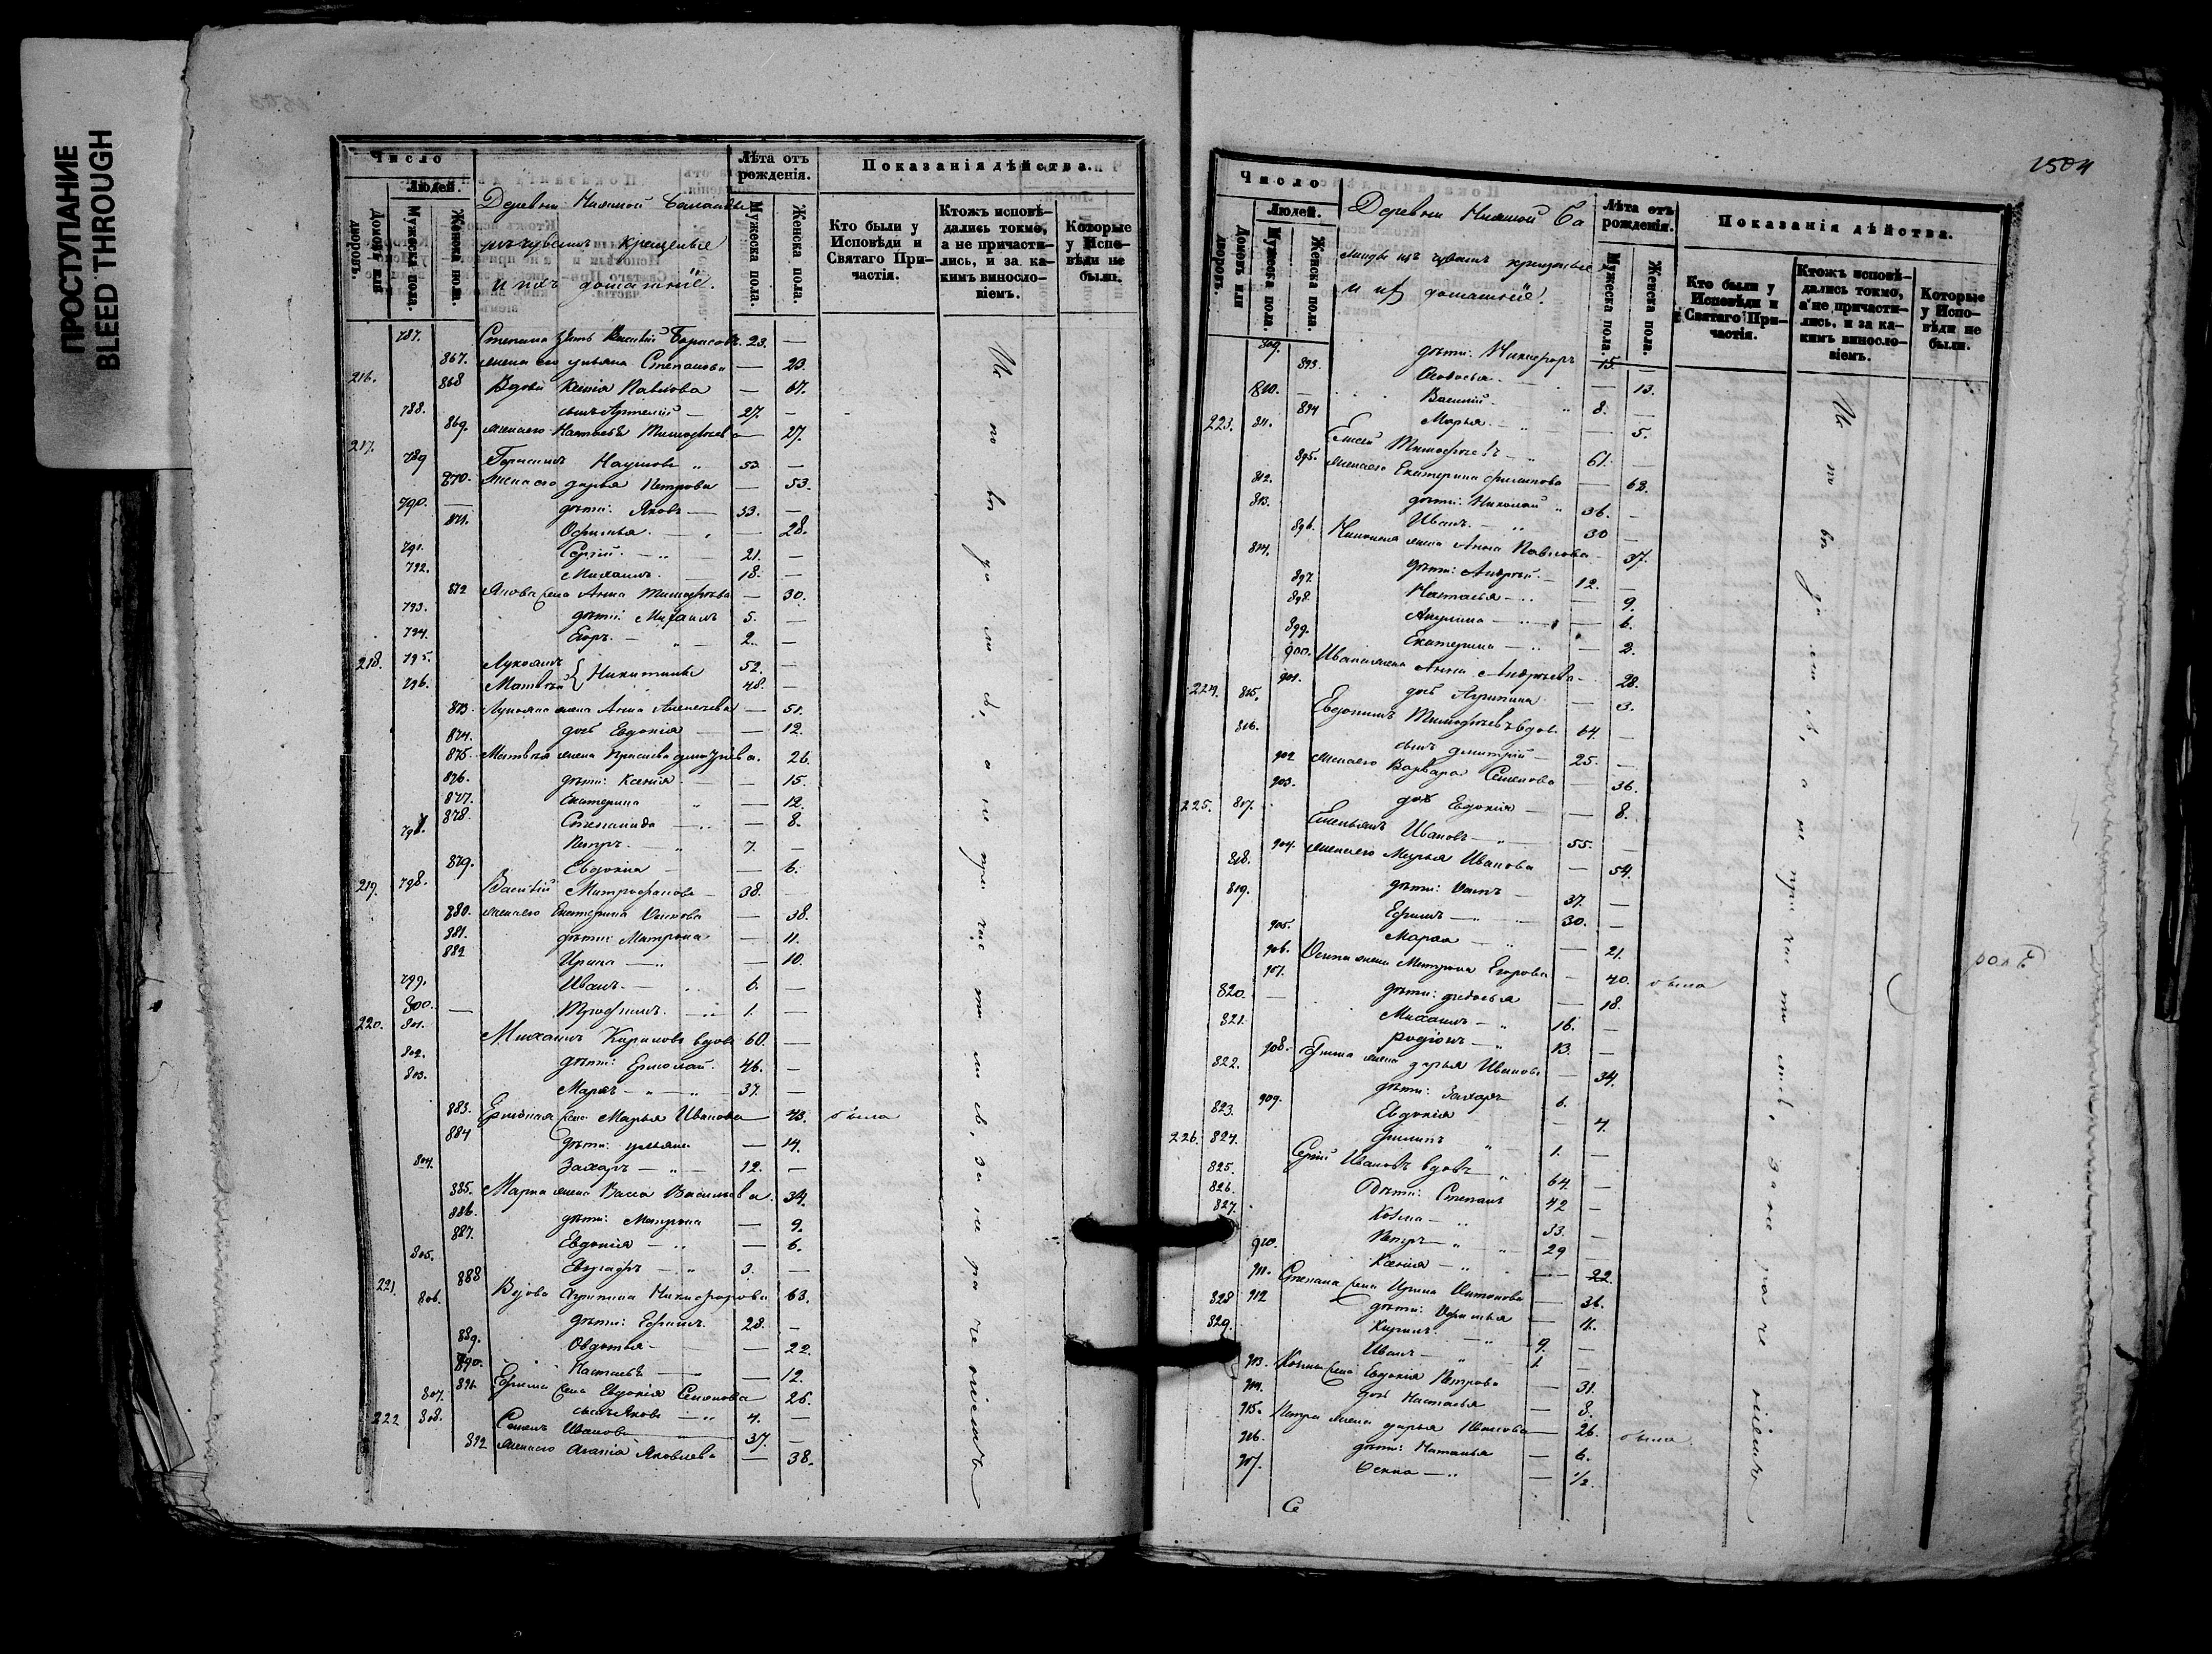 ПРОСТУПАНИЕ
BLEED THROUGH
Число
Людей.
Домовъ или дворовъ.
Мужеска пола.
Женска пола.
Деревни Нижной
изъ чувашъ крещеные
и ихъ домашніе.
Лѣта отъ рожденія.
Мужеска пола.
Женска пола.
Показанія дѣйства.
Кто были у Исповѣди и Святаго Причастія.
Ктожъ исповѣдались токмо, а не причастились, и за какимъ винословіемъ.
Которые у Исповѣди не были.
787. Степана зять Василій Борисовъ. 23. —
867. жена его Ульяна Степанова — 23.
216. 868 Вдова Ксенія Павлова — 67.
788. сынъ Артемій — 27. —
869. жена его Настасья Тимофѣева — 27.
217. 789 Наумовъ 53. —
870. жена его Дарья Петрова — 53.
790. — дѣти: Яковъ — 33. —
871. Офимья — 28.
791. Сергій — 21. —
792. Михаилъ. 18. —
872 Якова жена Анна Тимофѣева — 30.
793. дѣти: Михаилъ 5. —
794. Егоръ — 2. —
218. 795. Лукоянъ } Никитины 52. —
796. Матвѣй 48. —
873. Лукояна жена Анна Алексѣева — 51.
874. дочь Евдокія — 12.
875. Матвѣя жена — 26.
876. дѣти: Ксенія — 15.
877. Екатерина — 12.
878. Степанида — 8.
797. Петръ — 7. —
879. Евдокія — 6.
219. 798. Василій Митрофановъ — 38. —
880. жена его Екатерина — 38.
881. дѣти: Матрона — 11.
882 Ирина — 10.
799. Иванъ — 6. —
800. — Трофимъ. 1. —
220. 801. Михаилъ Кириловъ вдовъ 60. —
802. дѣти: Ермолай. 46. —
803. Маркъ — 37. —
883. Ермолая жена Марья Иванова 43. была
884 дѣти: Ульяна — 14.
804. Захаръ — 12. —
885. Марка жена Васса Васильева. 34.
886. дѣти: Матрона — 9.
887. Евдокія — 6.
805. Евграфъ — 3. —
221. 888 Вдова Агрипина Никифорова 63.
806. дѣти: Ефимъ 28. —
889. Овдотья — 22.
890. Настасья — 12.
891. Ефима жена Евдокія Семенова 26.
807. сынъ Яковъ — 4. —
222 808. Семенъ Ивановъ 37. —
892 жена его Яковлева — 38.
Исповѣдались, а не причастились, за нераченіемъ
1504
Число
Людей.
Домовъ или дворовъ.
Мужеска пола.
Женска пола.
Деревни Нижной Ба
изъ чувашъ крещеные
и ихъ домашніе.
Лѣта отъ рожденія.
Мужеска пола.
Женска пола.
Показанія дѣйства.
Кто были у Исповѣди и Святаго Причастія.
Ктожъ исповѣдались токмо, а не причастились, и за какимъ винословіемъ.
Которые у Исповѣди не были.
809. дѣти: Никифоръ 15. —
893. — 13.
810. — Василій 8. —
894 Марья — 5.
223. 811. Елисей Тимофѣевъ — 61. —
895. жена его Екатерина — 62.
812. дѣти: Николай 36. —
813. Иванъ — 30 —
896. Николая жена Анна Павлова — 37.
814. дѣти: Андрей — 12. —
897. Наталья — 9.
898. Акулина — 6.
899. Екатерина — 2.
900. Ивана жена Анна Андреева — 28.
901. дочь Агрипина — 3.
224. 815. Евдокимъ Тимофѣевъ вдовъ 64. —
816. сынъ Дмитрій — 25. —
902 жена его Варвара Семенова — 36.
903. дочь Евдокія — 8.
225. 817. Емельянъ Ивановъ — 55. —
904. жена его Марья Иванова — 54.
818. дѣти: Осипъ — 37. —
819. Ефимъ — 30. —
905. Марѳа — 21.
906. Осипа жена Матрона Егорова — 40. была
907. дѣти: Федосья — 18.
820. — Михаилъ — 16. —
821. Родіонъ — 13. —
908. Ефима жена Дарья Иванова — 34.
822. дѣти: Захаръ 6. —
909. Евдокія — 4.
823. Филипъ 1. —
226. 824. Сергій Ивановъ вдовъ — 64. —
825. Дѣти: Степанъ 42 —
826. Козма — 33. —
827. Петръ — 29 —
910. Ксенія — 22.
911. Степана жена Ирина Антонова — 36.
912 дѣти: Офимья — 11.
828 Кирилъ 9. —
829. Иванъ — 1. —
913. Козмы жена Евдокія Петрова — 31.
914. дочь Настасья — 8.
915. Петра жена Дарья Иванова — 26. была
916. дѣти: Наталья — 6.
917. — 1/2
Исповѣдались, а не причастились, за нераченіемъ
Се